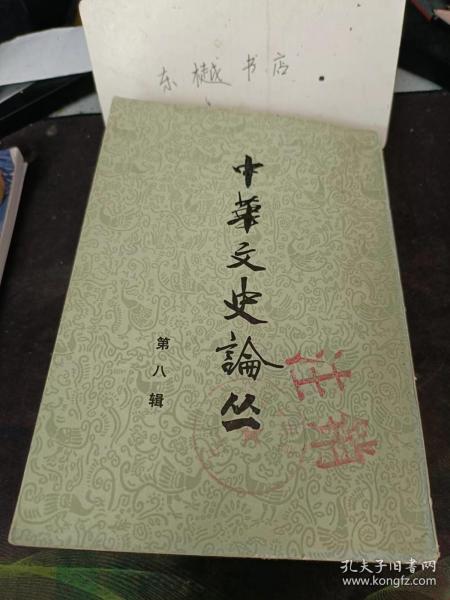 东樾书店
中華文史論丛
第八辑
注销
孔夫子旧书网
www.kongfz.com